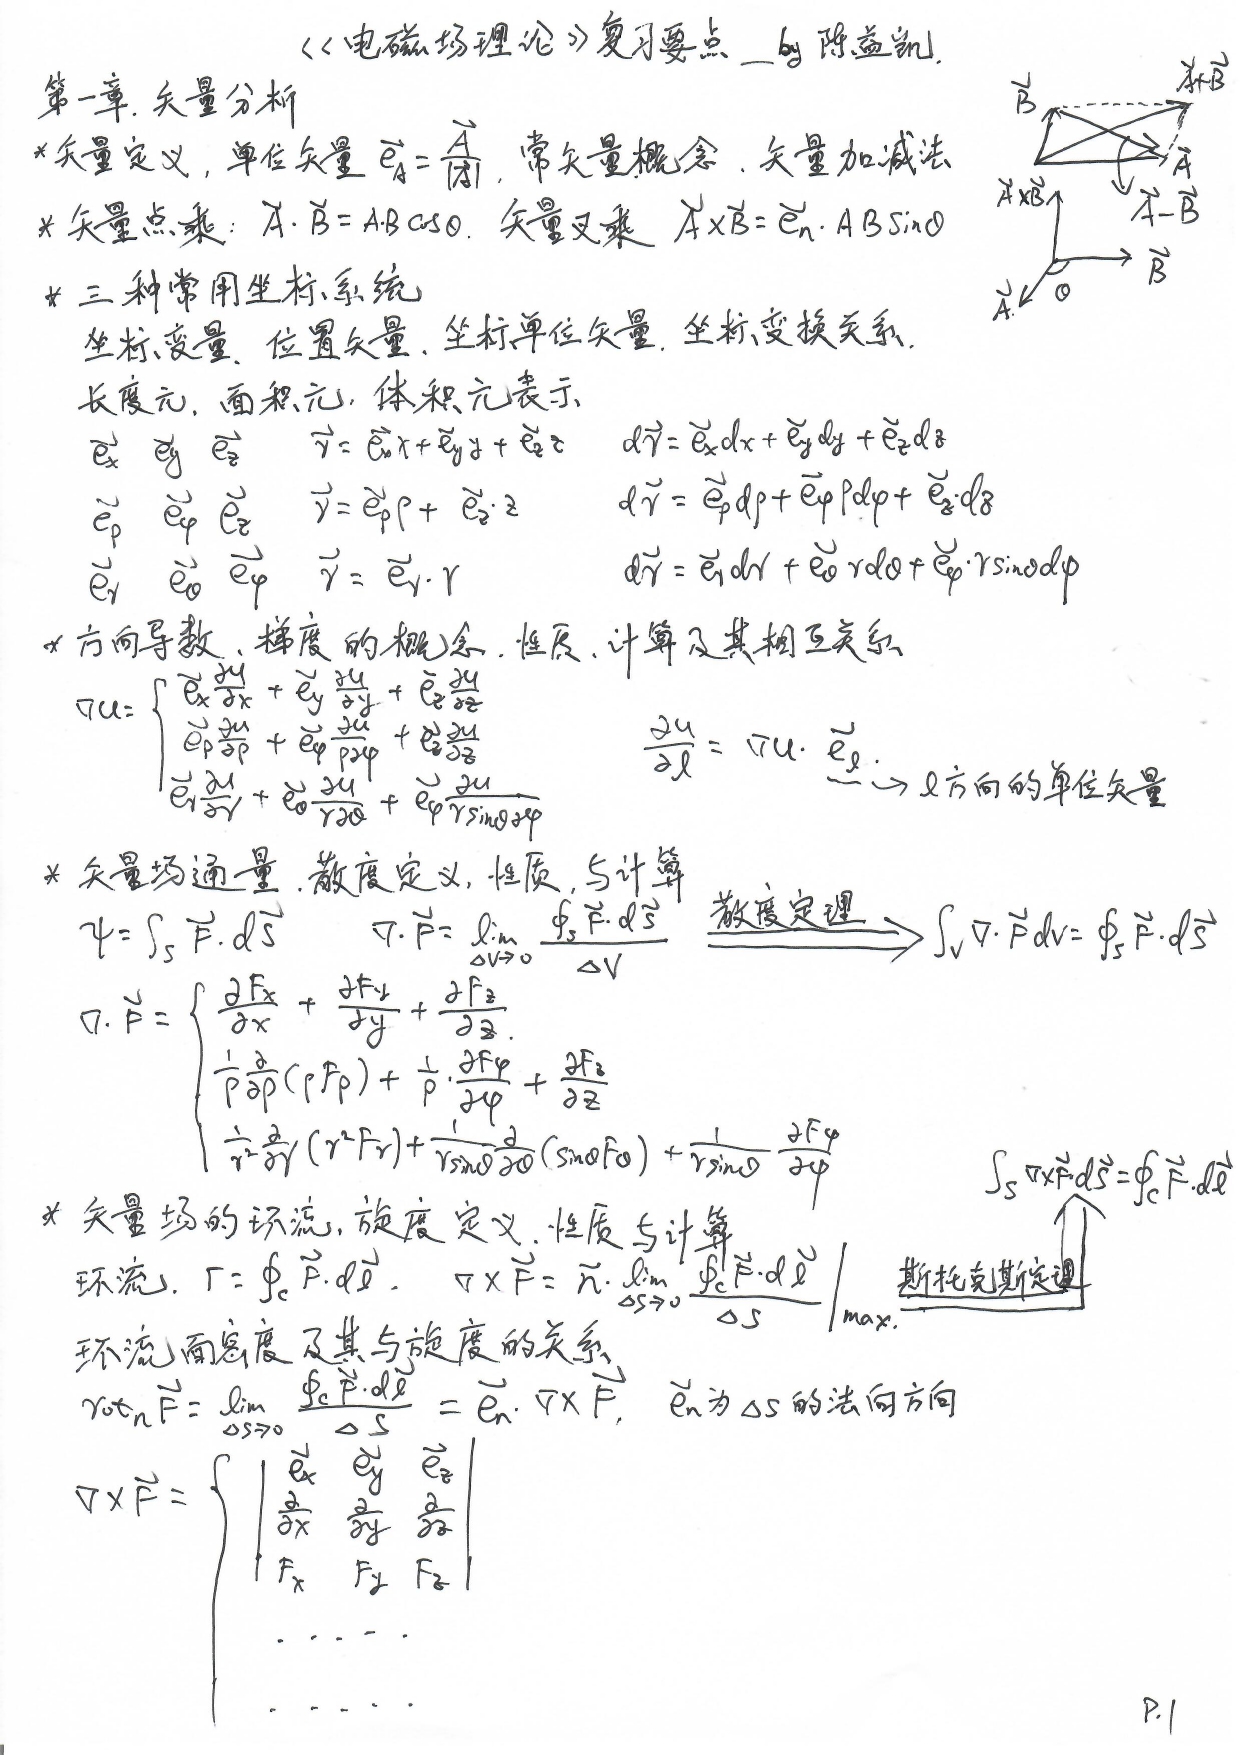 《电磁场理论》复习要点 _by 陈益凯.
第一章. 矢量分析
* 矢量定义, 单位矢量 $\vec{e}_A = \frac{\vec{A}}{|\vec{A}|}$, 常矢量概念. 矢量加减法
$\vec{B}$ $\vec{A}+\vec{B}$ $\vec{A}$ $\vec{A}-\vec{B}$
* 矢量点乘: $\vec{A}\cdot\vec{B} = AB\cos\theta$. 矢量叉乘 $\vec{A}\times\vec{B} = \vec{e}_n\cdot AB\sin\theta$
$\vec{A}\times\vec{B}$ $\vec{B}$ $\vec{A}$ $\theta$
* 三种常用坐标系统
坐标变量. 位置矢量. 坐标单位矢量. 坐标变换关系.
长度元. 面积元. 体积元表示
$\vec{e}_x$ $\vec{e}_y$ $\vec{e}_z$ $\vec{r} = \vec{e}_x x + \vec{e}_y y + \vec{e}_z z$ $d\vec{r} = \vec{e}_x dx + \vec{e}_y dy + \vec{e}_z dz$
$\vec{e}_\rho$ $\vec{e}_\varphi$ $\vec{e}_z$ $\vec{r} = \vec{e}_\rho \rho + \vec{e}_z\cdot z$ $d\vec{r} = \vec{e}_\rho d\rho + \vec{e}_\varphi \rho d\varphi + \vec{e}_z\cdot dz$
$\vec{e}_r$ $\vec{e}_\theta$ $\vec{e}_\varphi$ $\vec{r} = \vec{e}_r\cdot r$ $d\vec{r} = \vec{e}_r dr + \vec{e}_\theta r d\theta + \vec{e}_\varphi\cdot r\sin\theta d\varphi$
* 方向导数、梯度的概念. 性质. 计算及其相互关系
$\nabla u = \begin{cases} \vec{e}_x\frac{\partial u}{\partial x} + \vec{e}_y\frac{\partial u}{\partial y} + \vec{e}_z\frac{\partial u}{\partial z} \\ \vec{e}_\rho\frac{\partial u}{\partial \rho} + \vec{e}_\varphi\frac{\partial u}{\rho\partial\varphi} + \vec{e}_z\frac{\partial u}{\partial z} \\ \vec{e}_r\frac{\partial u}{\partial r} + \vec{e}_\theta\frac{\partial u}{r\partial\theta} + \vec{e}_\varphi\frac{\partial u}{r\sin\theta\partial\varphi} \end{cases}$
$\frac{\partial u}{\partial l} = \nabla u\cdot\vec{e}_l$. → l方向的单位矢量
* 矢量场通量. 散度定义, 性质, 与计算
$\psi = \int_S \vec{F}\cdot d\vec{S}$ $\nabla\cdot\vec{F} = \lim_{\Delta V\to 0}\frac{\oint_S \vec{F}\cdot d\vec{S}}{\Delta V}$ 散度定理 ⇒ $\int_V \nabla\cdot\vec{F}dV = \oint_S \vec{F}\cdot d\vec{S}$
$\nabla\cdot\vec{F} = \begin{cases} \frac{\partial F_x}{\partial x} + \frac{\partial F_y}{\partial y} + \frac{\partial F_z}{\partial z}. \\ \frac{1}{\rho}\frac{\partial}{\partial\rho}(\rho F_\rho) + \frac{1}{\rho}\cdot\frac{\partial F_\varphi}{\partial\varphi} + \frac{\partial F_z}{\partial z} \\ \frac{1}{r^2}\frac{\partial}{\partial r}(r^2 F_r) + \frac{1}{r\sin\theta}\frac{\partial}{\partial\theta}(\sin\theta F_\theta) + \frac{1}{r\sin\theta}\frac{\partial F_\varphi}{\partial\varphi} \end{cases}$
* 矢量场的环流, 旋度定义. 性质与计算
$\int_S \nabla\times\vec{F}\cdot d\vec{S} = \oint_C \vec{F}\cdot d\vec{l}$
环流. $\Gamma = \oint_C \vec{F}\cdot d\vec{l}$. $\nabla\times\vec{F} = \vec{n}\cdot\lim_{\Delta S\to 0}\frac{\oint_C \vec{F}\cdot d\vec{l}}{\Delta S}|_{max}$. 斯托克斯定理
环流面密度及其与旋度的关系
$rot_n\vec{F} = \lim_{\Delta S\to 0}\frac{\oint_C \vec{F}\cdot d\vec{l}}{\Delta S} = \vec{e}_n\cdot\nabla\times\vec{F}$, $\vec{e}_n$为$\Delta S$的法向方向
$\nabla\times\vec{F} = \begin{cases} \begin{vmatrix} \vec{e}_x & \vec{e}_y & \vec{e}_z \\ \frac{\partial}{\partial x} & \frac{\partial}{\partial y} & \frac{\partial}{\partial z} \\ F_x & F_y & F_z \end{vmatrix} \\ ..... \\ ..... \end{cases}$
P.1